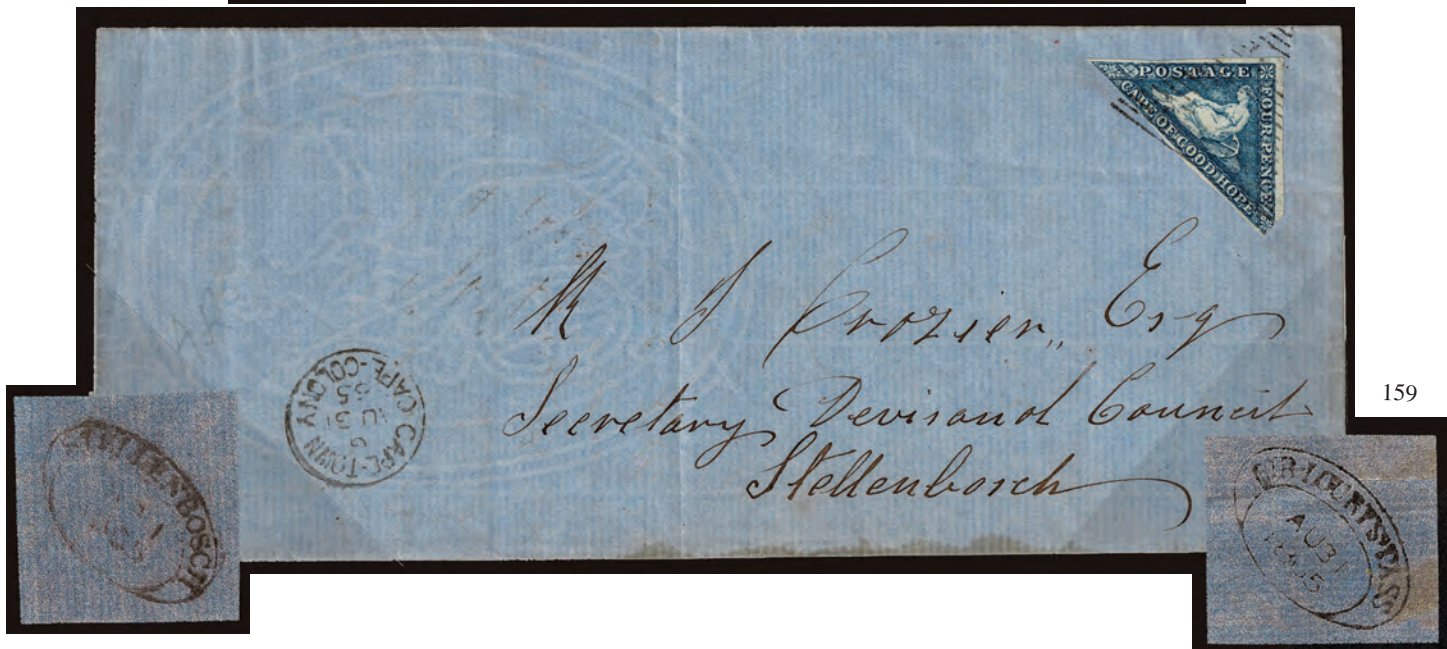 POSTAGE
FOUR PENCE
CAPE OF GOOD HOPE
Crozier,, Esq
Secretary Council
Stellenbosch
159
CAPE-TOWN
CAPE-COLONY
AU 31
65
STELLENBOSCH
SIR LOWRYS PASS
AU 31
1865